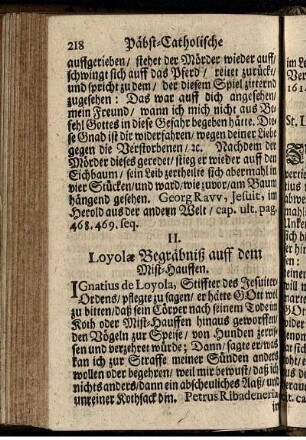 218 Päbst-Catholische
auffgerieben / stehet der Mörder wieder auff/
schwingt sich auff das Pferd / reitet zurücke/
und spricht zu dem / der diesem Spiel zitternd
zugesehen : Das war auff dich angesehen/
mein Freund / wann ich mich nicht aus Be-
fehl Gottes in diese Gefahr begeben hätte. Die-
se Gnad ist dir widerfahren / wegen deiner Liebe
gegen die Verstorbenen / ꝛc. Nachdem der
Mörder dieses geredet / stieg er wieder auff den
Eichbaum / sein Leib zertheilte sich abermahl in
vier Stücken/und ward/wie zuvor/am Baum
hängend gesehen. Georg Ravv, Jesuit, im
Herold aus der andern Welt / cap. ult. pag.
468. 469. seq.
II.
Loyolæ Begräbniß auff dem
Mist-Hauffen.
IGnatius de Loyola, Stiffter des Jesuiter-
Ordens / pflegte zu sagen / er hätte GOtt wol
zu bitten/daß sein Cörper nach seinem Tode im
Koth oder Mist-Hauffen hinaus geworffen/
den Vögeln zur Speise / von Hunden zerris-
sen und verzehret würde ; Dann / sagte er/was
kan ich zur Straffe meiner Sünden anders
wollen oder begehren / weil mir bewust/daß ich
nichts anders/dann ein abscheuliches Aaß/und
unreiner Kothsack bin. Petrus Ribadeneria
in